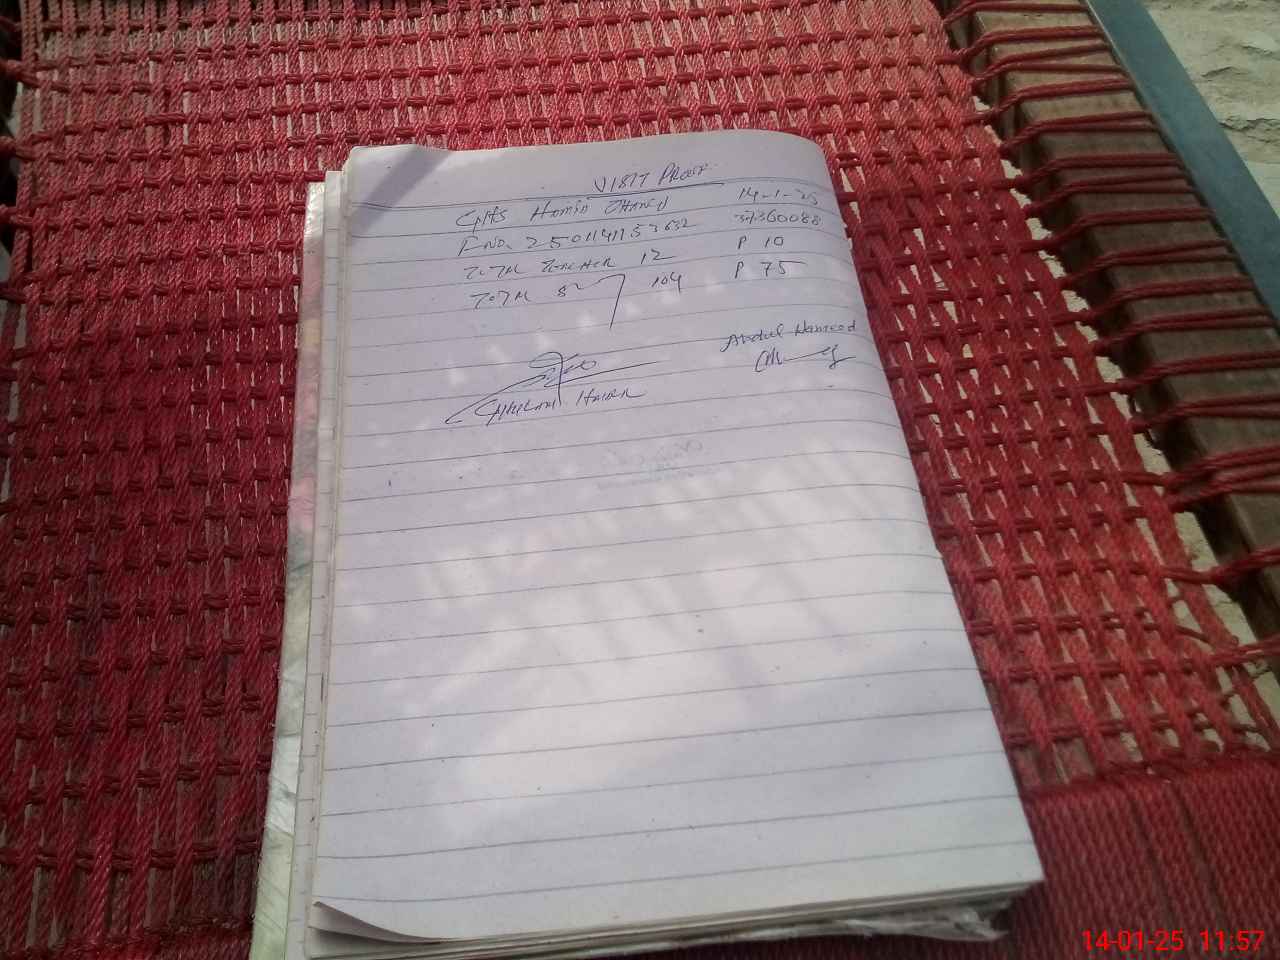 VISIT PROOF
GHS HAMID 14-1-25
F NO. 2501141153632 37360088
TOTAL TEACHER 12 P 10
TOTAL 104 P 75
Abdul Hameed
GHULAM
14-01-25 11:57